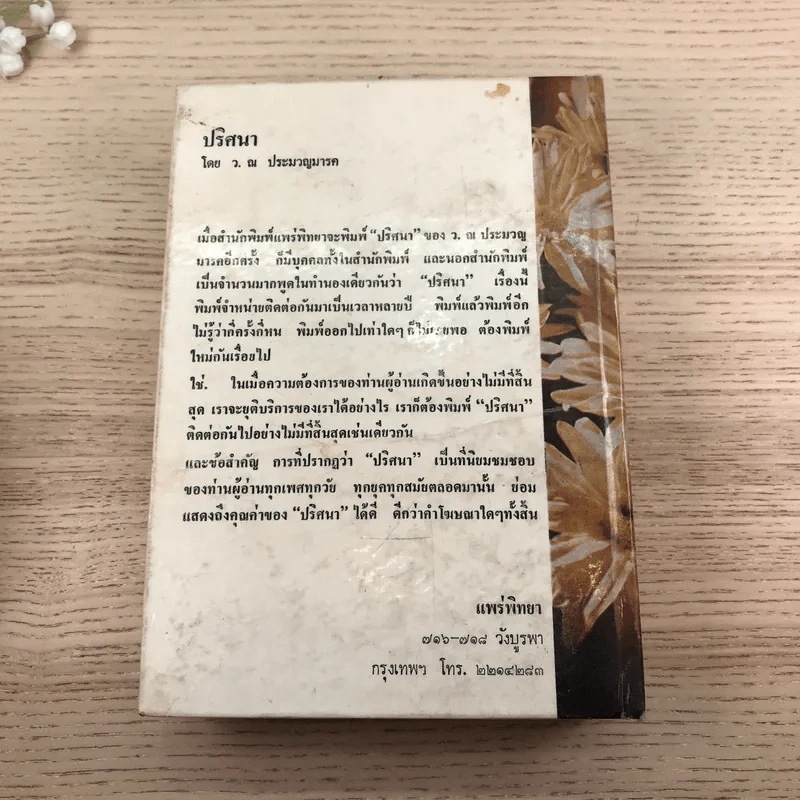 ปริศนา
โดย ว. ณ ประมวญมารค
เมื่อสำนักพิมพ์แพร่พิทยาจะพิมพ์ “ปริศนา” ของ ว. ณ ประมวญ
มารคอีกครั้ง ก็มีบุคคลทั้งในสำนักพิมพ์ และนอกสำนักพิมพ์
เป็นจำนวนมากพูดในทำนองเดียวกันว่า “ปริศนา” เรื่องนี้
พิมพ์จำหน่ายติดต่อกันมาเป็นเวลาหลายปี พิมพ์แล้วพิมพ์อีก
ไม่รู้ว่ากี่ครั้งกี่หน พิมพ์ออกไปเท่าใดๆ ก็ไม่เคยพอ ต้องพิมพ์
ใหม่กันเรื่อยไป
ใช่. ในเมื่อความต้องการของท่านผู้อ่านเกิดขึ้นอย่างไม่มีที่สิ้น
สุด เราจะยุติบริการของเราได้อย่างไร เราก็ต้องพิมพ์ “ปริศนา”
ติดต่อกันไปอย่างไม่มีที่สิ้นสุดเช่นเดียวกัน
และข้อสำคัญ การที่ปรากฏว่า “ปริศนา” เป็นที่นิยมชมชอบ
ของท่านผู้อ่านทุกเพศทุกวัย ทุกยุคทุกสมัยตลอดมานั้น ย่อม
แสดงถึงคุณค่าของ “ปริศนา” ได้ดี ดีกว่าคำโฆษณาใดๆทั้งสิ้น
แพร่พิทยา
๗๑๖–๗๑๘ วังบูรพา
กรุงเทพฯ โทร. ๒๒๑๔๒๘๓